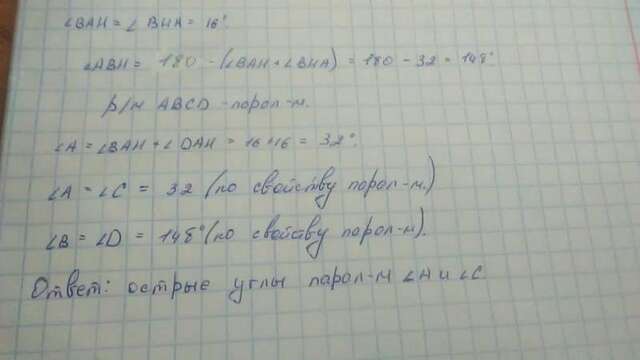 ∠BAH = ∠ BHA = 16°.
∠ABH = 180 - (∠BAH + ∠BHA) = 180 - 32 = 148°
р/м ABCD - парал-м.
∠A = ∠BAH + ∠DAH = 16+16 = 32°.
∠A = ∠C = 32 (по свойству парал-м.)
∠B = ∠D = 148° (по свойству парал-м).
Ответ: острые углы парал-м ∠A и ∠C